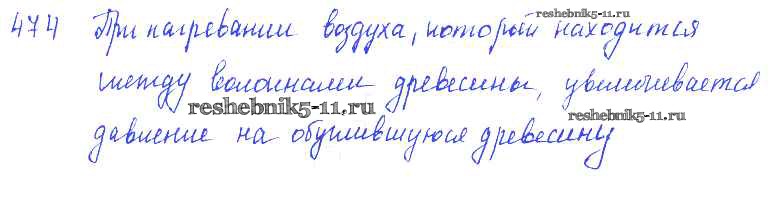 474 При нагревании воздуха, который находится
reshebnik5-11.ru
между волокнами древесины, увеличивается
reshebnik5-11.ru
reshebnik5-11.ru
давление на обуглившуюся древесину